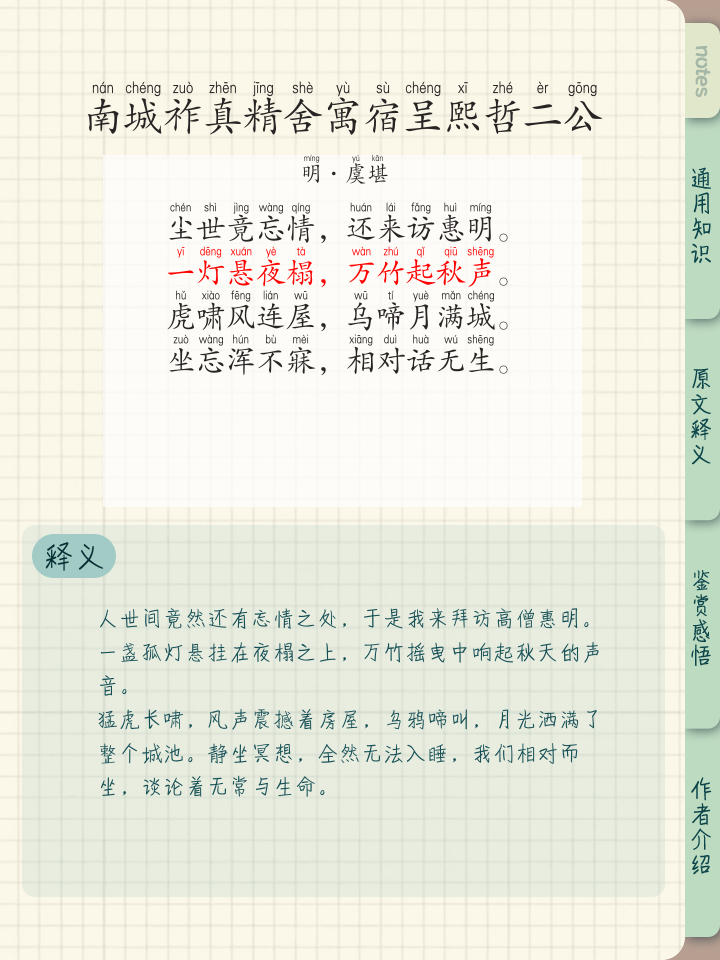 nán chéng zuò zhēn jīng shè yù sù chéng xī zhé èr gōng
南城祚真精舍寓宿呈熙哲二公
míng yú kān
明·虞堪
chén shì jìng wàng qíng huán lái fǎng huì míng
尘世竟忘情，还来访惠明。
yī dēng xuán yè tà wàn zhú qǐ qiū shēng
一灯悬夜榻，万竹起秋声。
hǔ xiào fēng lián wū wū tí yuè mǎn chéng
虎啸风连屋，乌啼月满城。
zuò wàng hún bù mèi xiāng duì huà wú shēng
坐忘浑不寐，相对话无生。
释义
人世间竟然还有忘情之处，于是我来拜访高僧惠明。
一盏孤灯悬挂在夜榻之上，万竹摇曳中响起秋天的声
音。
猛虎长啸，风声震撼着房屋，乌鸦啼叫，月光洒满了
整个城池。静坐冥想，全然无法入睡，我们相对而
坐，谈论着无常与生命。
notes
通用知识
原文释义
鉴赏感悟
作者介绍